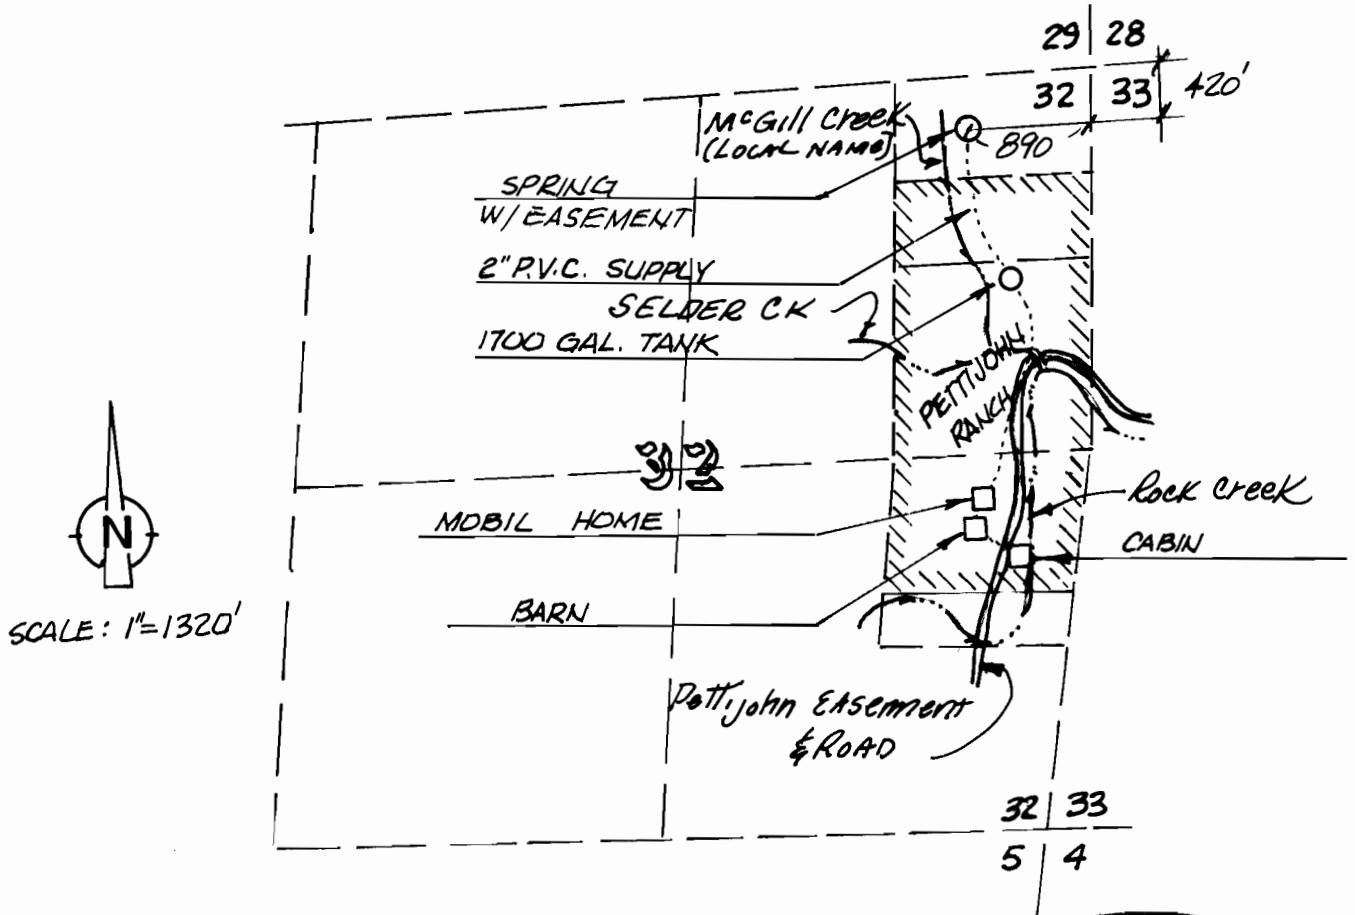 29 28
32 33
420'
McGill Creek
(LOCAL NAME)
890
SPRING
W/ EASEMENT
2" P.V.C. SUPPLY
SELDER CK
1700 GAL. TANK
PETTIJOHN
RANCH
32
Rock Creek
MOBIL HOME
CABIN
N
BARN
SCALE: 1"=1320'
Pettijohn EASEMENT
& ROAD
32 33
5 4